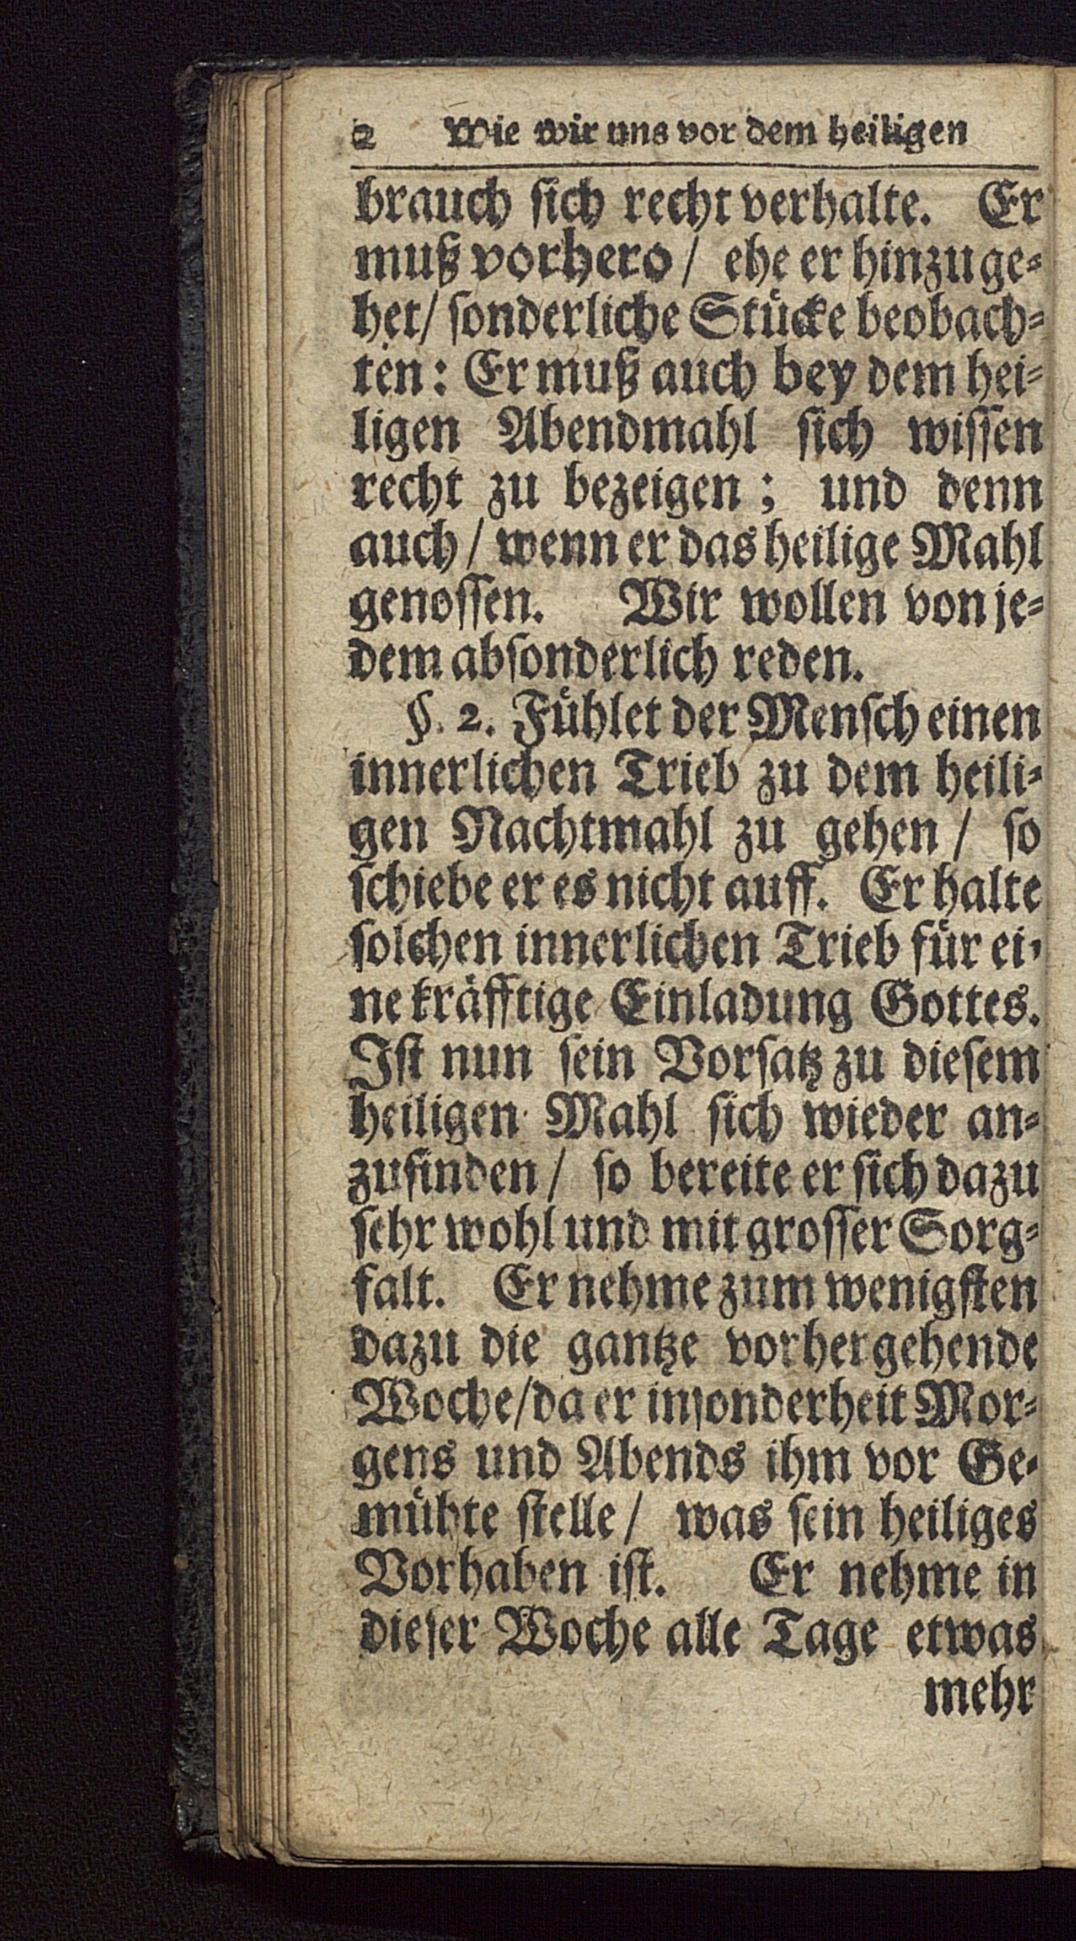 2 Wie wir uns vor dem heiligen
brauch sich recht verhalte. Er
muß vorhero / ehe er hinzu ge⸗
het/ sonderliche Stücke beobach⸗
ten: Er muß auch bey dem hei⸗
ligen Abendmahl sich wissen
recht zu bezeigen; und denn
auch / wenn er das heilige Mahl
genossen. Wir wollen von je⸗
dem absonderlich reden.
§. 2. Fühlet der Mensch einen
innerlichen Trieb zu dem heili⸗
gen Nachtmahl zu gehen / so
schiebe er es nicht auff. Er halte
solchen innerlichen Trieb für ei⸗
ne kräfftige Einladung Gottes.
Ist nun sein Vorsatz zu diesem
heiligen Mahl sich wieder an⸗
zufinden / so bereite er sich dazu
sehr wohl und mit grosser Sorg⸗
falt. Er nehme zum wenigsten
dazu die gantze vorhergehende
Woche/da er insonderheit Mor⸗
gens und Abends ihm vor Ge⸗
mühte stelle / was sein heiliges
Vorhaben ist. Er nehme in
dieser Woche alle Tage etwas
mehr